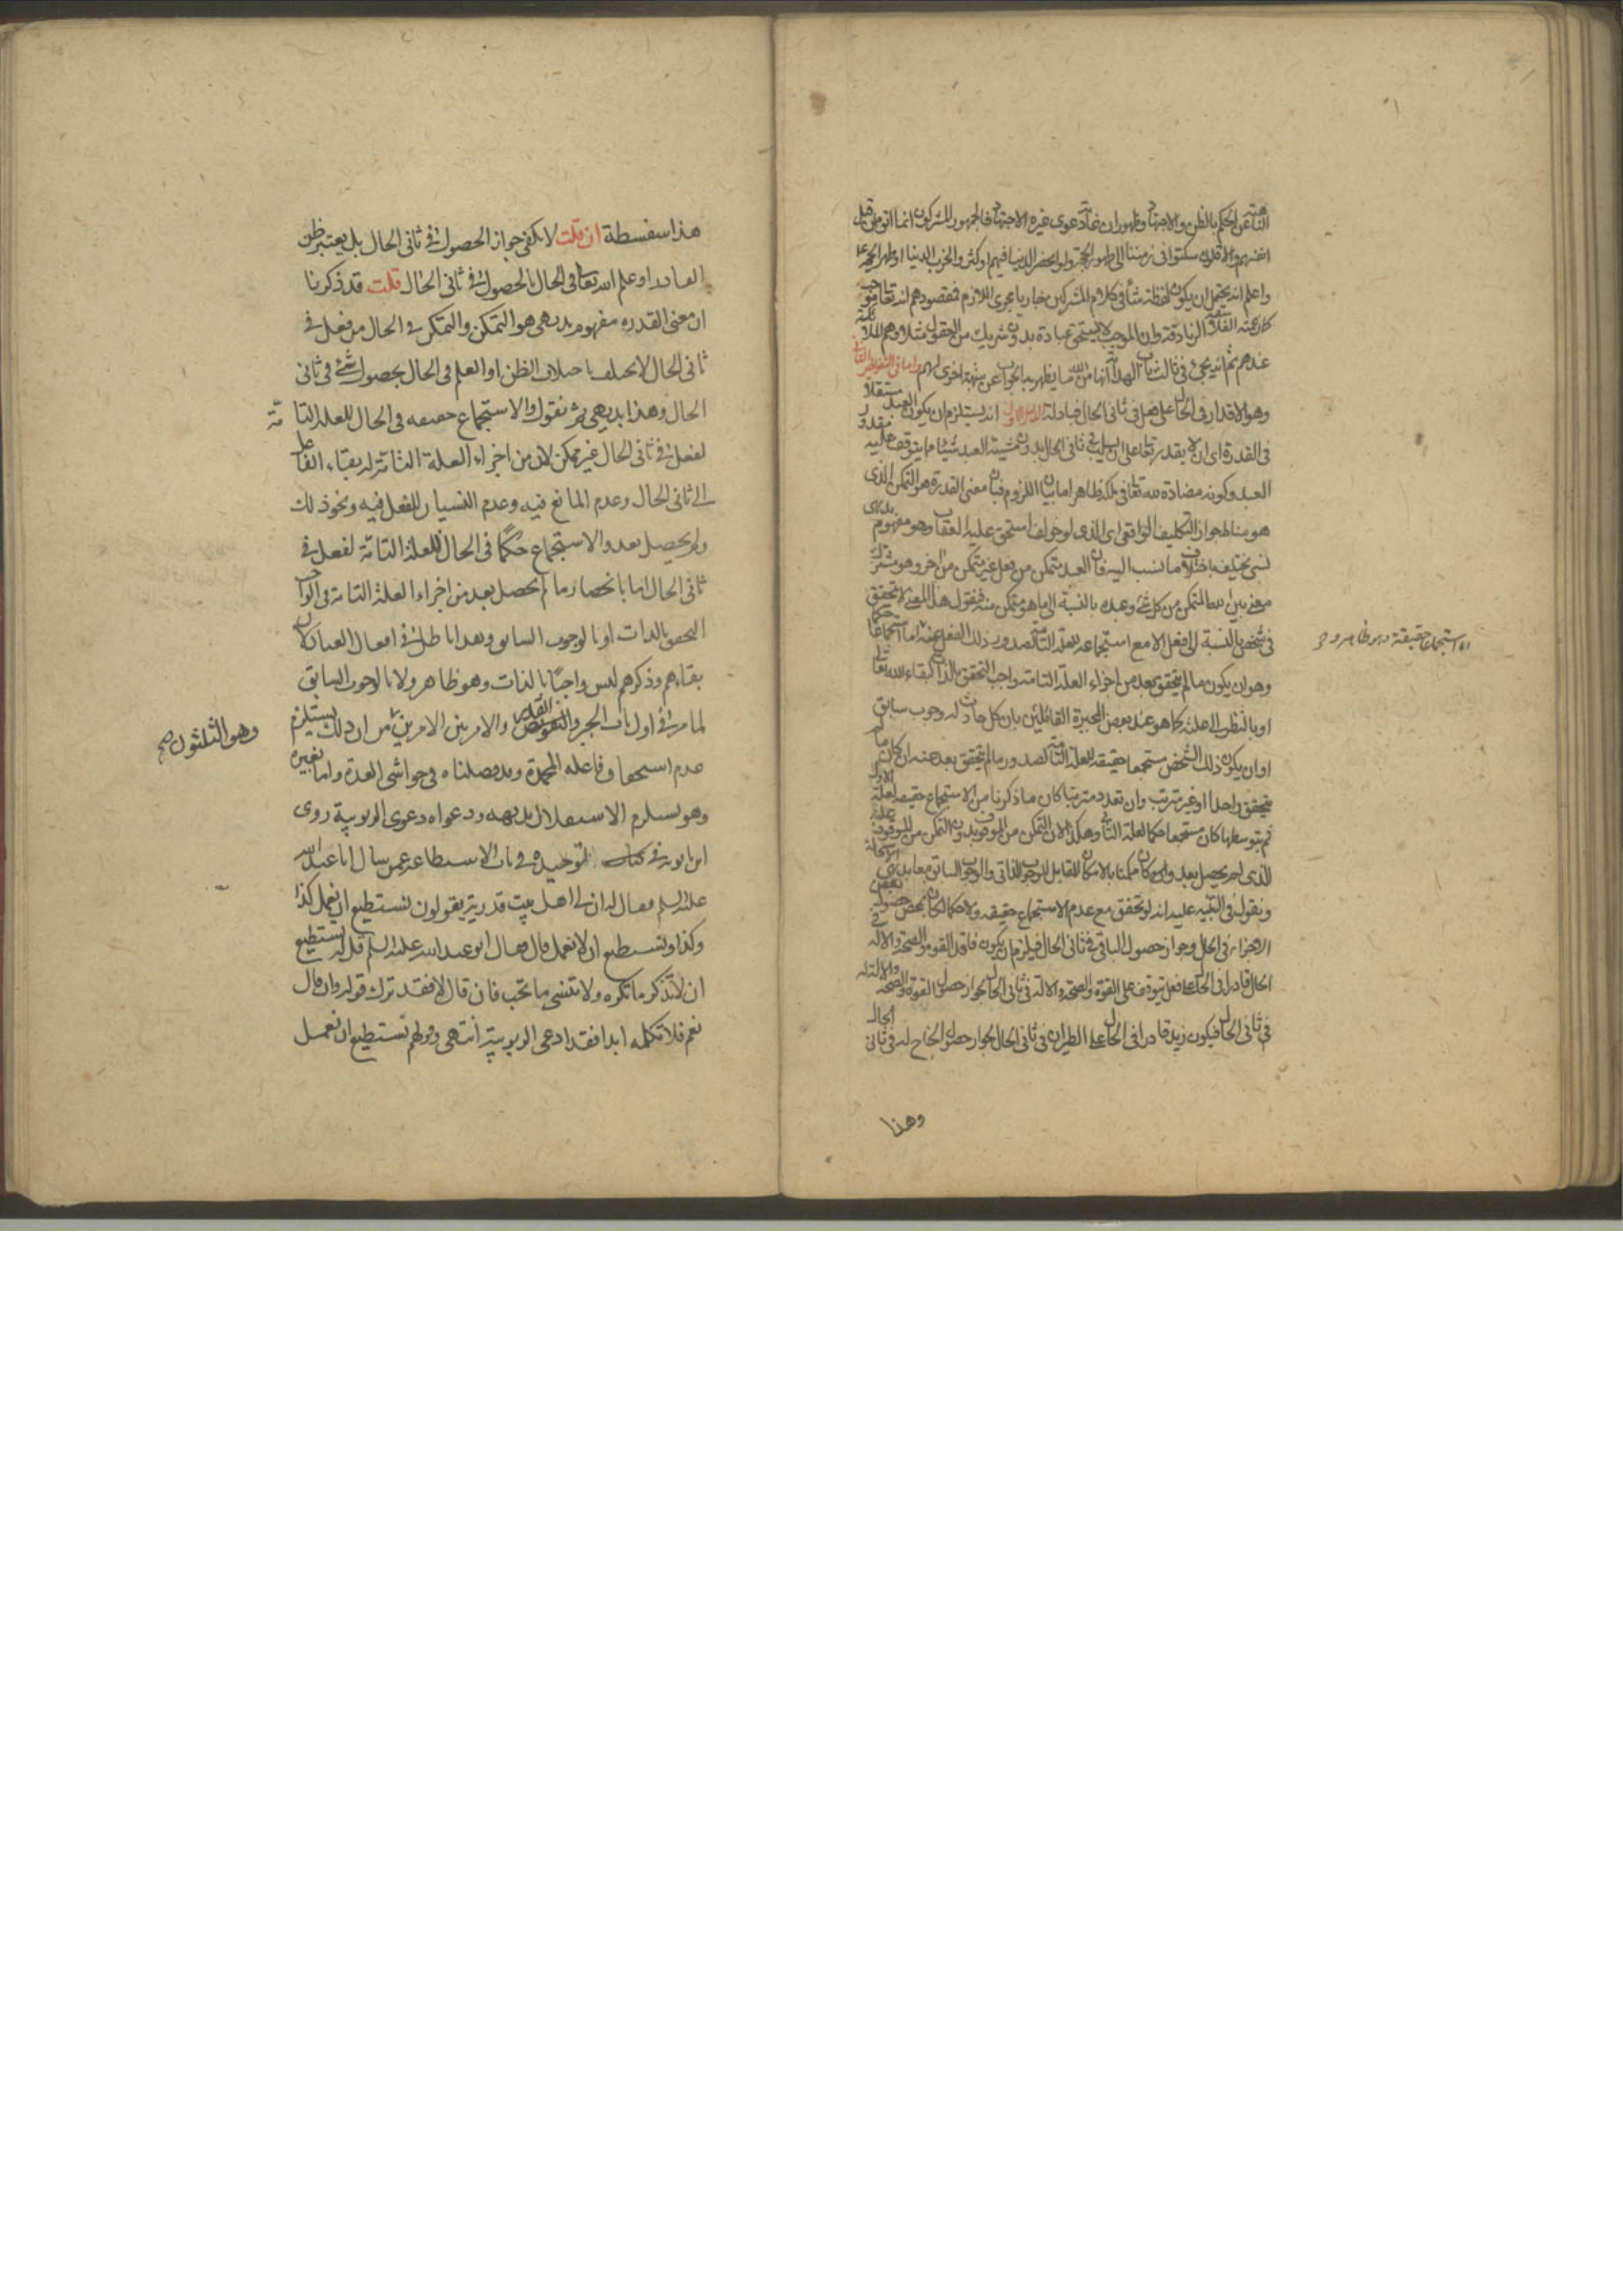 الناهية عن الحكم بالظن والاجتهاد وظهور ان غاية دعوى غيره الاجتهاد فالجمهور المشركون انما اتوا من قبل
انفسهم والاقلون سكتوا في زمننا الى ظهور الحجة ولو لا حضر الدنيا فيهم اوكثر والخرب الدنيا او ظهر الحجة
واعلم انه يحتمل ان يكون لفظة شاء في كلام المشركين جاريا مجرى اللازم فمقصودهم انه تعالى موجب
كما زعمته الفلاسفة الزنادقة وان الموجب لا يستحق عبادة بدون شريك من العقول مثلا وهم الثلاثة
عندهم ثم انه يجيء في ثالث باب الهداية انها من الله ما يظهر به الجواب عن شبهة اخرى لهم واما في التفويض الثاني
وهو الاقدار في الحال على فعل في ثاني الحال فبادلة الدليل الاول انه يستلزم ان يكون العبد مستقلا
في القدرة اى ان لا يقدر تعالى على ان يسلب في ثاني الحال بدون مشيئة العبد شيئا مما يتوقف عليه مقدور
العبد وكونه مضادة لله تعالى في ملكه ظاهر اما بيان اللزوم فبان معنى القدرة هو التمكن الذى
هو مناط لجواز التكليف الواقعى اى الذى لو خولف استحق عليه العقاب وهو مفهوم بديهى
نسبي يختلف باختلاف ما نسب اليه فان العبد متمكن من فعل غير متمكن من آخر وهو مشترك
معنى بين الله المتمكن من كل شئ وعبده بالنسبة الى ما هو متمكن منه فنقول هذا المعنى لا يتحقق
في شخص بالنسبة الى فعل الا مع استجماعه للعلة التامة لصدور ذلك الفعل عنه اما استجماعا حكما
وهو ان يكون ما لم يتحقق بعد من اجزاء العلة التامة واجب التحقق بالذات كبقاء الله تعالى
او بالنظر الى علته كما هو عند بعض المجبرة القائلين بان كل حادث له وجوب سابق
او ان يكون ذلك الشخص مستجمعا حقيقة للعلة التامة لصدور ما لم يتحقق بعد عنه ان كان ما لم
يتحقق واحدا او غير مترتب وان تعدد مترتبا كان ما ذكرنا من الاستجماع حقيقة لعلة الاول
ثم بتوسطها كان مستجمعا حكما لعلة الثاني وهكذا لان التمكن من الموقوف بدون التمكن من الموقوف عليه
الذى لم يحصل بعد وان كان ممكنا بالامكان المقابل للوجوب الذاتي والوجوب السابق معا بديهى الاستحالة
ونقول في التنبيه عليه انه لو تحقق مع عدم الاستجماع حقيقة ولا حكما لكان بمحض حصول بعض
الاجزاء في الحال وجواز حصول الباقي في ثاني الحال فيلزم ان يكون فاقد القوة والصحة والآلة في
الحال قادرا في الحال على فعل يتوقف على القوة والصحة والآلة في ثاني الحال لجواز حصول القوة والصحة والآلة له
في ثاني الحال فيكون زيد قادرا في الحال على الطيران في ثاني الحال لجواز حصول الجناح له في ثاني الحال
وهذا
هذا سفسطة ان قلت لا يكفي جواز الحصول في ثاني الحال بل يعتبر ظن
القادر او علم الله تعالى في الحال الحصول في ثاني الحال قلت قد ذكرنا
ان معنى القدرة مفهوم بديهى هو التمكن والتمكن في الحال من فعل في
ثاني الحال لا يختلف باختلاف الظن او العلم في الحال بحصول شئ في ثاني
الحال وهذا بديهى ثم نقول والاستجماع حقيقة في الحال للعلة التامة
لفعل في ثاني الحال غير ممكن لان من اجزاء العلة التامة له بقاء الفاعل
الى ثاني الحال وعدم المانع فيه وعدم النسيان للفعل فيه ونحو ذلك
ولم يحصل بعد والاستجماع حكما في الحال للعلة التامة لفعل في
ثاني الحال اما بانحصار ما لم يحصل بعد من اجزاء العلة التامة في الواجب
التحقق بالذات او بالوجوب السابق وهذا باطل في افعال العباد لان
بقاءهم وذكرهم ليس واجبا بالذات وهو ظاهر ولا بالوجوب السابق
لما مر في اول باب الجبر والقدر والامر بين الامرين من ان ذلك يستلزم
عدم استحقاق فاعله المحمدة وقد فصلناه في حواشى العدة واما بغيره
وهو يستلزم الاستقلال بديهة ودعواه دعوى الربوبية روى
ابن بابويه في كتاب التوحيد في باب الاستطاعة عمن سال ابا عبد الله
عليه السلم فقال له ان لى اهل بيت قدرية يقولون نستطيع ان نعمل كذا
وكذا ونستطيع ان لا نعمل قال فقال ابو عبد الله عليه السلم قل له هل تستطيع
ان لا تذكر ما تكره ولا تنسى ما تحب فان قال لا فقد ترك قوله وان قال
نعم فلا تكلمه ابدا فقد ادعى الربوبية انتهى وقولهم نستطيع ان نعمل
وهو الثلثون صح